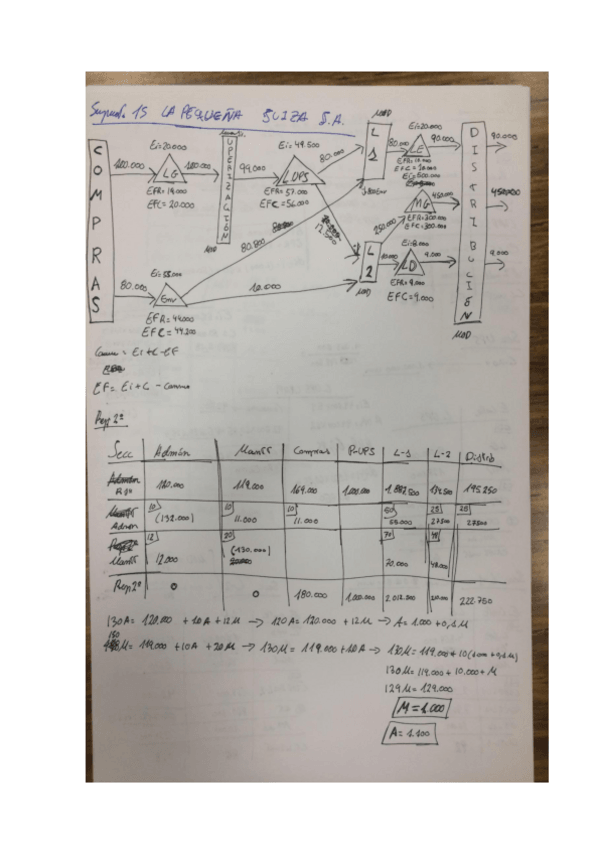 Supuesto 15 LA PEQUEÑA SUIZA S.A.
COMPRAS
100.000
Ei=20.000
LG
EFR=19.000
EFC=20.000
100.000
UPERIZACIÓN
MOD
99.000
Ei=49.500
LUPS
EFR=57.000
EFC=56.000
80.000
MOD
L1
80.000
Ei=20.000
LE
EFC=20.000
90.000
Ei=500.000
MG
EFR=300.000
EFC=300.000
450.000
250.000
L2
MOD
10.000
Ei=8.000
LD
EFR=9.000
EFC=9.000
9.000
DISTRIBUCIÓN
MOD
90.000
450.000
9.000
80.000
Env
EFR=44.000
80.800
10.000
Consumo = Ei+C-EF
EF= Ei+C - Consumo
Rep 2ª
Secc Admón Mantt Compras P-UPS L-1 L-2 Distrib
120.000 119.000 169.000 1.000.000 195.250
Admón (132.000) 11.000 11.000 55.000 27500 27500
10 10 10 50 25 25
12 20 70 48
Mantt 12.000 (130.000) 70.000 48.000
Rep 2ª 0 0 180.000 1.000.000 2.012.500 222.750
130A= 120.000 + 10A + 12M → 120A = 120.000 + 12M → A= 1.000 + 0,1M
150M= 119.000 + 10A + 20M → 130M = 119.000 + 10A → 130M = 119.000 + 10(1.000 + 0,1M)
130M = 119.000 + 10.000 + M
129M = 129.000
M = 1.000
A = 1.100